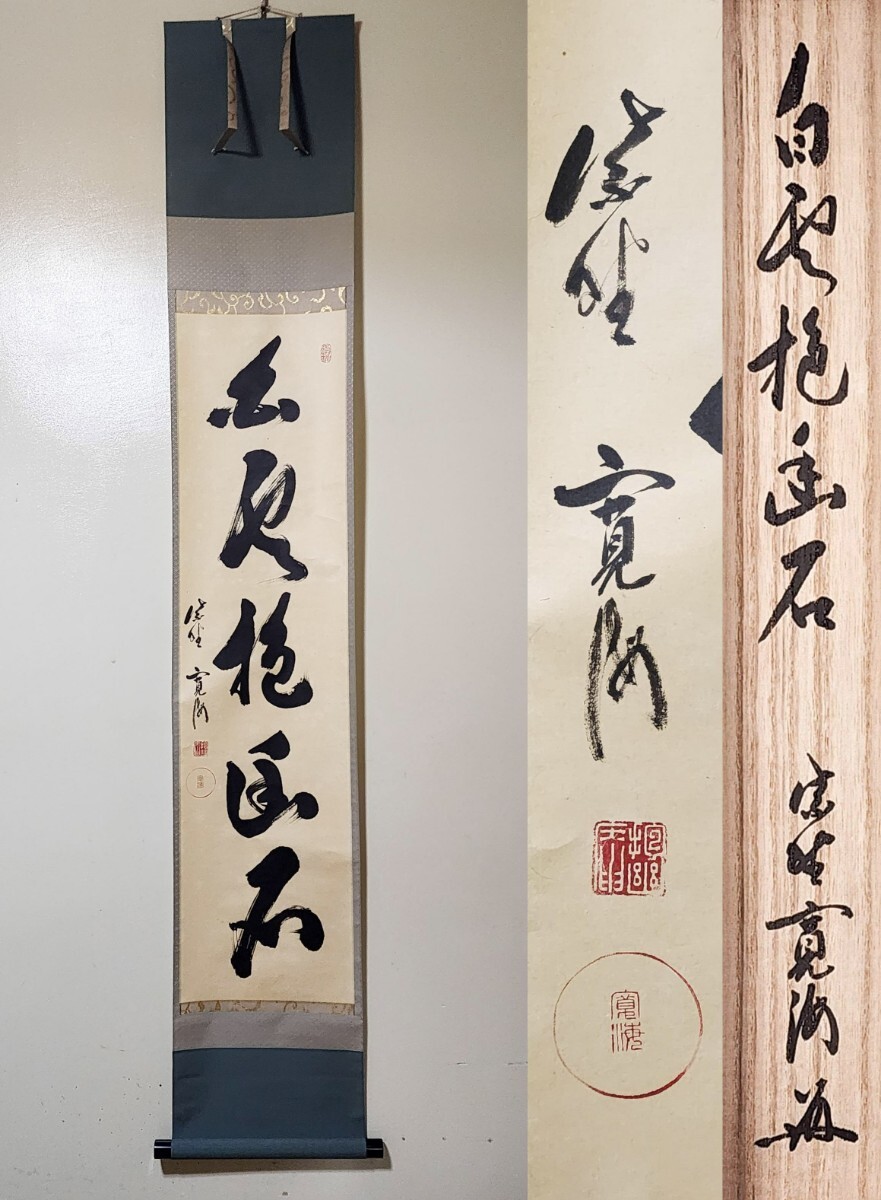 白雲抱幽石
紫野 寛海
寛海
紫野 寛海
寛海
白雲抱幽石 紫野寛海